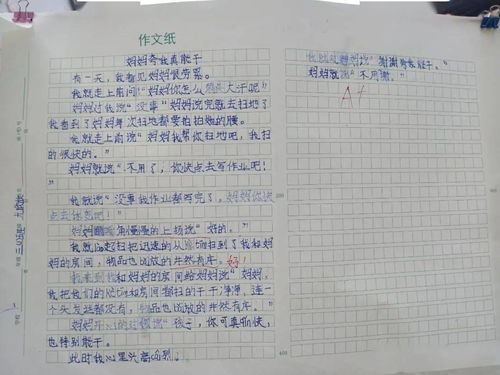 作文纸
妈妈夸我真能干
有一天，我看见妈妈很劳累。
我就走上前问“妈妈你怎么满头大汗呢”
妈妈对我说“没事”妈妈说完就去扫地了
我看到了妈妈每次扫地都要拍拍她的腰。
我就走上前说“妈妈我帮你扫地吧，我扫
的很快的。”
妈妈就说“不用了，你快点去写作业吧！
”
我就说“没事我作业都写完了，妈妈你快
点去休息吧！”
妈妈嘴角慢慢的上扬说“好的。”
我就拿起扫把迅速的从
扫到了我和妈
妈的房间，物品也摆放的井然有序。好！
我来到我和妈妈的房间给妈妈说“妈妈，
我把我们的
和房间都扫的干干净净，连一
个头发丝都没有，物品也摆放的井然有序。”
妈妈开心的
说“孩子，你可真勤快，
也特别能干。
此时我心里头高兴
我就对妈妈说“谢谢夸我能干。”
妈妈就说“不用谢。”
A+